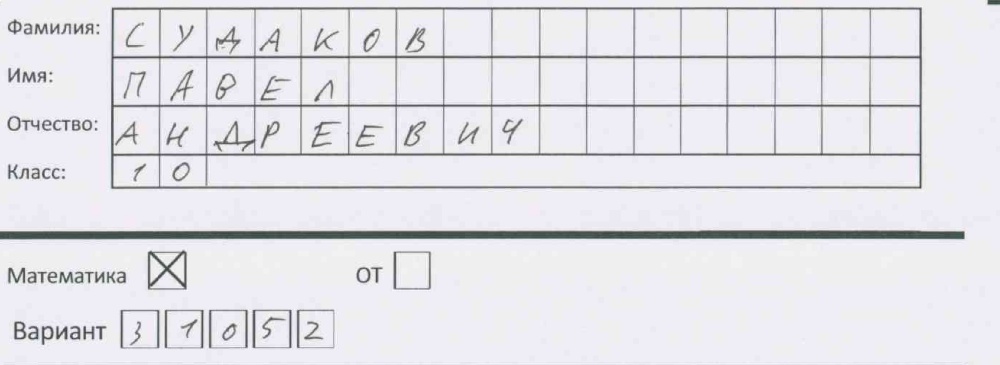 Фамилия: СУДАКОВ
Имя: ПАВЕЛ
Отчество: АНДРЕЕВИЧ
Класс: 10
Математика ОТ
Вариант 31052